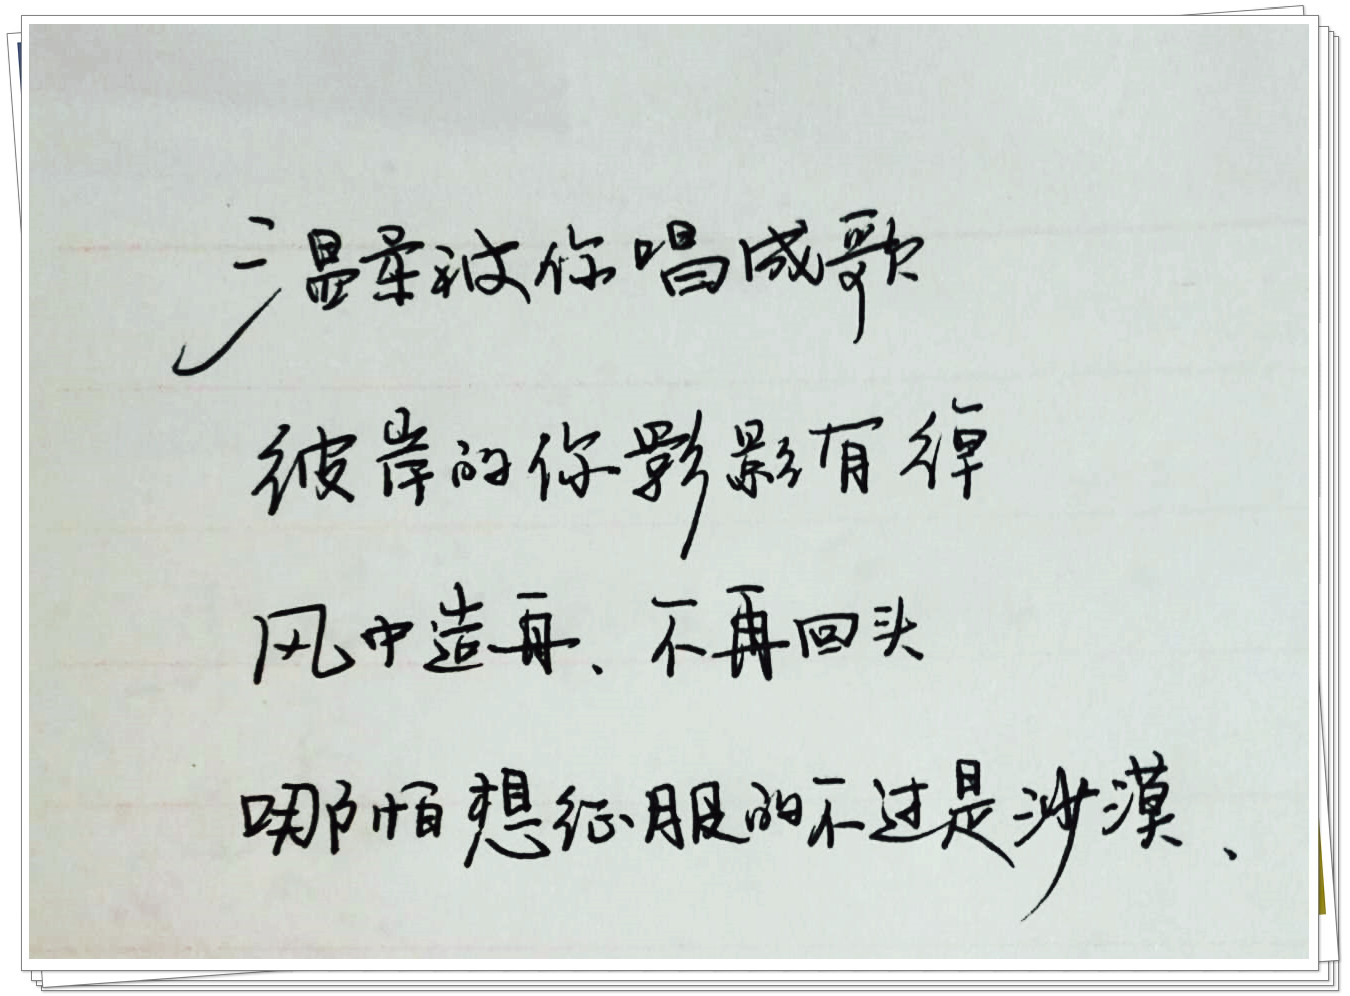 温柔被你唱成歌
彼岸的你影影有绰
风中造再、不再回头
哪怕想征服的不过是沙漠、